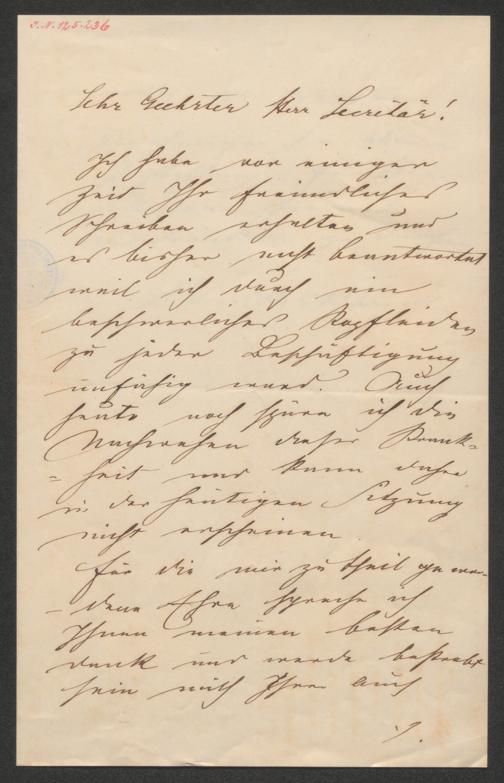 J.N. 125.236
Sehr Geehrter Herr Secritär!
Ich habe vor einiger
Zeit Ihr freundliches
Schreiben erhalten und
es bisher nicht beantwortet
weil ich durch ein
beschwerliches Kopfleiden
zu jeder Beschäftigung
unfähig ward. Auch
heute noch spüre ich die
Nachwehen dieser Krank-
-heit und kann daher
in der heutigen Sitzung
nicht erscheinen.
Für die mir zu theil gewor-
-dene Ehre spreche ich
Ihnen meinen besten
dank und werde bestrebt
sein mich Ihrer auch